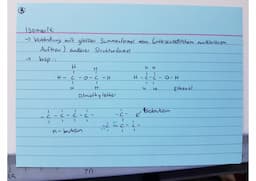 ③
Isomerie
→ Verbindung mit gleicher Summenformel aber unterschiedlichem
Aufbau / anderer Strukturformel
→ bsp.:
H H H H
H - C - O - C - H H - C - C - O - H
H H H H
Dimethylether Ethanol
- C - C - C - C -
n-butan
- C - C - C -